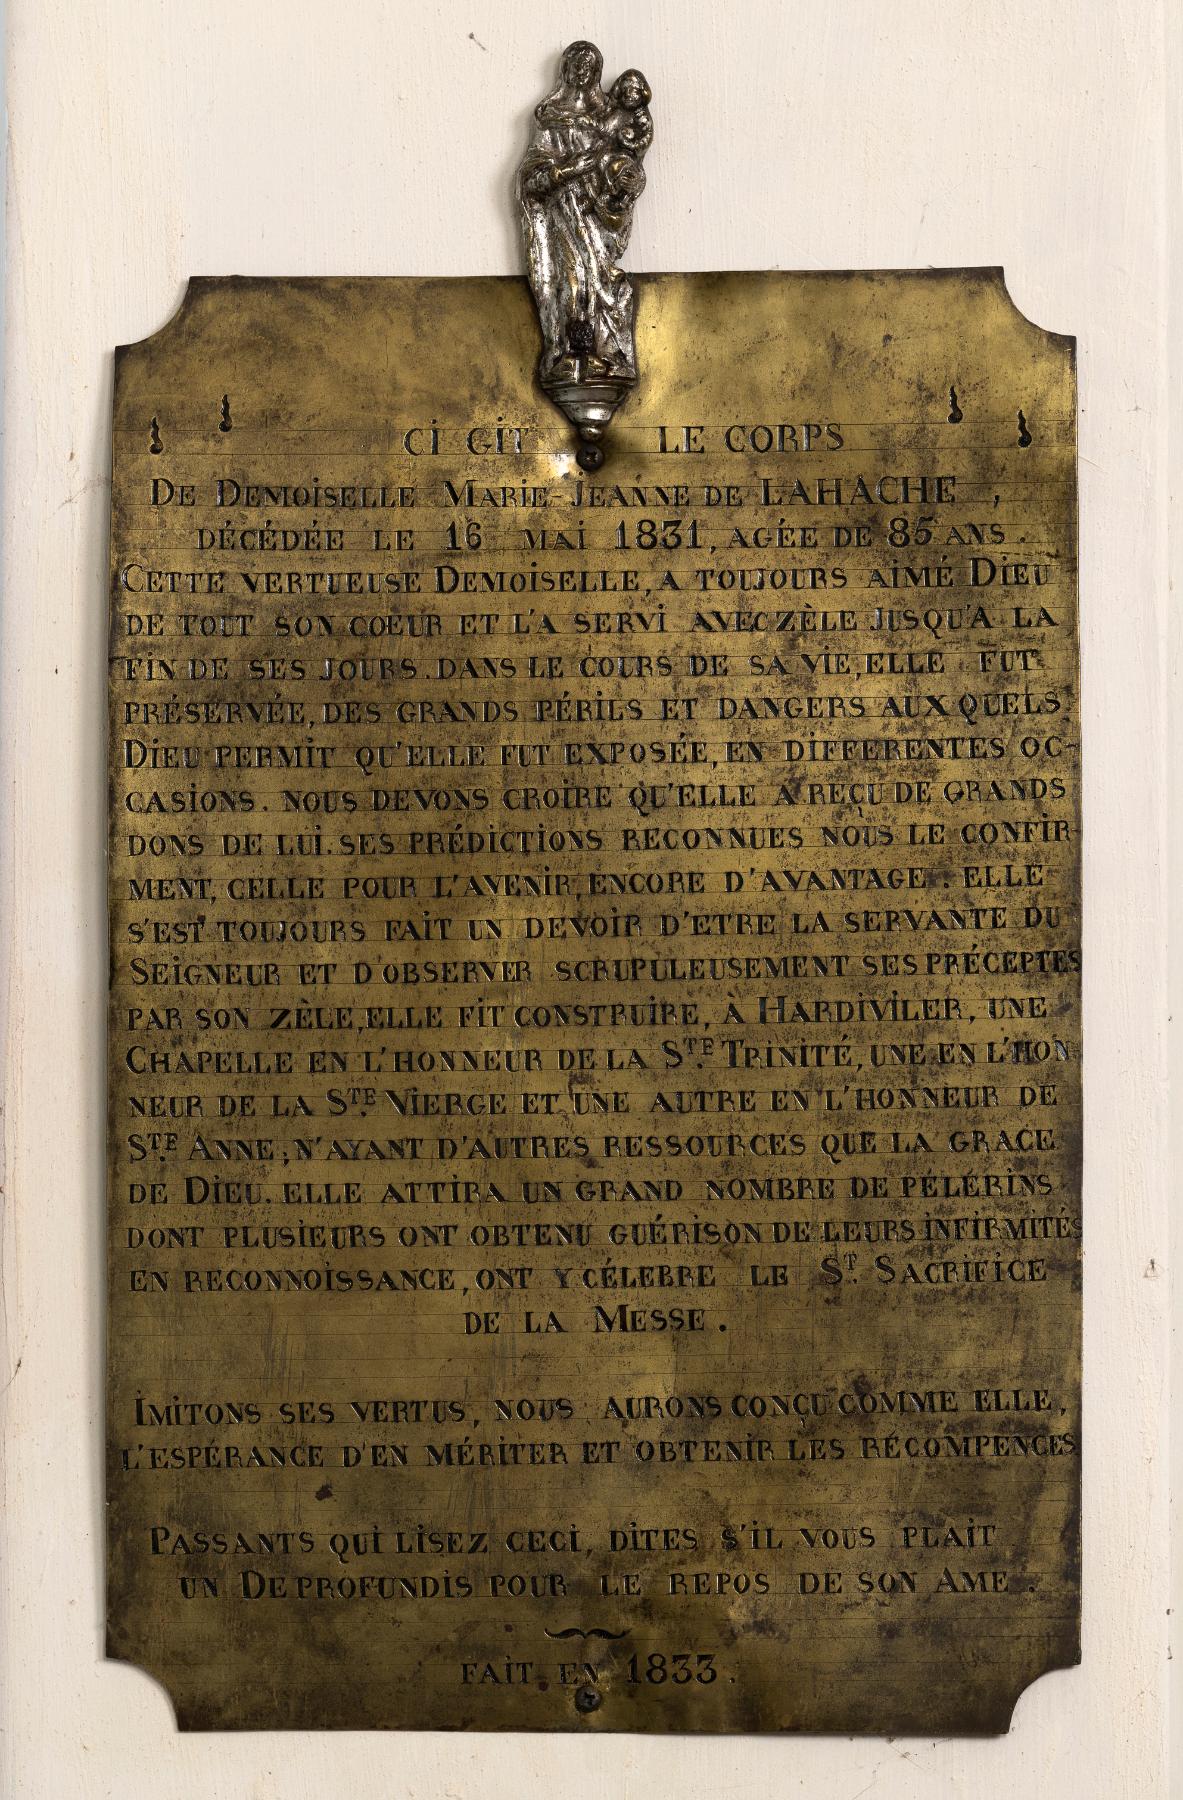 Ci GiT LE CORPS
DE DEMOiSELLE MARiE-JEANNE DE LAHACHE ,
DÉCÉDÉE LE 16 MAi 1831, AGÉE DE 85 ANS .
CETTE VERTUEUSE DEMOiSELLE, A TOUJOURS AiMÉ DiEU
DE TOUT SON CŒUR ET L'A SERVi AVEC ZÈLE JUSQU'A LA
FiN DE SES JOURS. DANS LE COURS DE SA ViE, ELLE FUT
PRÉSERVÉE, DES GRANDS PÉRiLS ET DANGERS AUX QUELS
DiEU PERMiT QU'ELLE FUT EXPOSÉE, EN DiFFERENTES OC-
CASiONS. NOUS DEVONS CROiRE QU'ELLE A REÇU DE GRANDS
DONS DE LUi. SES PRÉDiCTiONS RECONNUES NOUS LE CONFiR-
MENT, CELLE POUR L'AVENiR, ENCORE D'AVANTAGE . ELLE
S'EST TOUJOURS FAiT UN DEVOiR D'ETRE LA SERVANTE DU
SEiGNEUR ET D'OBSERVER SCRUPULEUSEMENT SES PRÉCEPTES
PAR SON ZÈLE, ELLE FiT CONSTRUiRE, À HARDiViLER, UNE
CHAPELLE EN L'HONNEUR DE LA STE TRiNiTÉ, UNE EN L'HON-
NEUR DE LA STE ViERGE ET UNE AUTRE EN L'HONNEUR DE
STE ANNE; N'AYANT D'AUTRES RESSOURCES QUE LA GRACE
DE DiEU. ELLE ATTiRA UN GRAND NOMBRE DE PÉLÉRiNS
DONT PLUSiEURS ONT OBTENU GUÉRiSON DE LEURS iNFiRMiTÉS
EN RECONNOiSSANCE, ONT Y CÉLEBRE LE ST. SACRiFiCE
DE LA MESSE .
iMiTONS SES VERTUS, NOUS AURONS CONÇU COMME ELLE,
L'ESPÉRANCE D'EN MÉRiTER ET OBTENiR LES RÉCOMPENCES
PASSANTS QUi LiSEZ CECi, DiTES S'iL VOUS PLAiT
UN DE PROFUNDiS POUR LE REPOS DE SON AME .
FAiT EN 1833 .